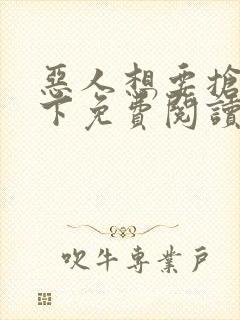 惡人想要搶
下免費閱讀
吹牛專業戶